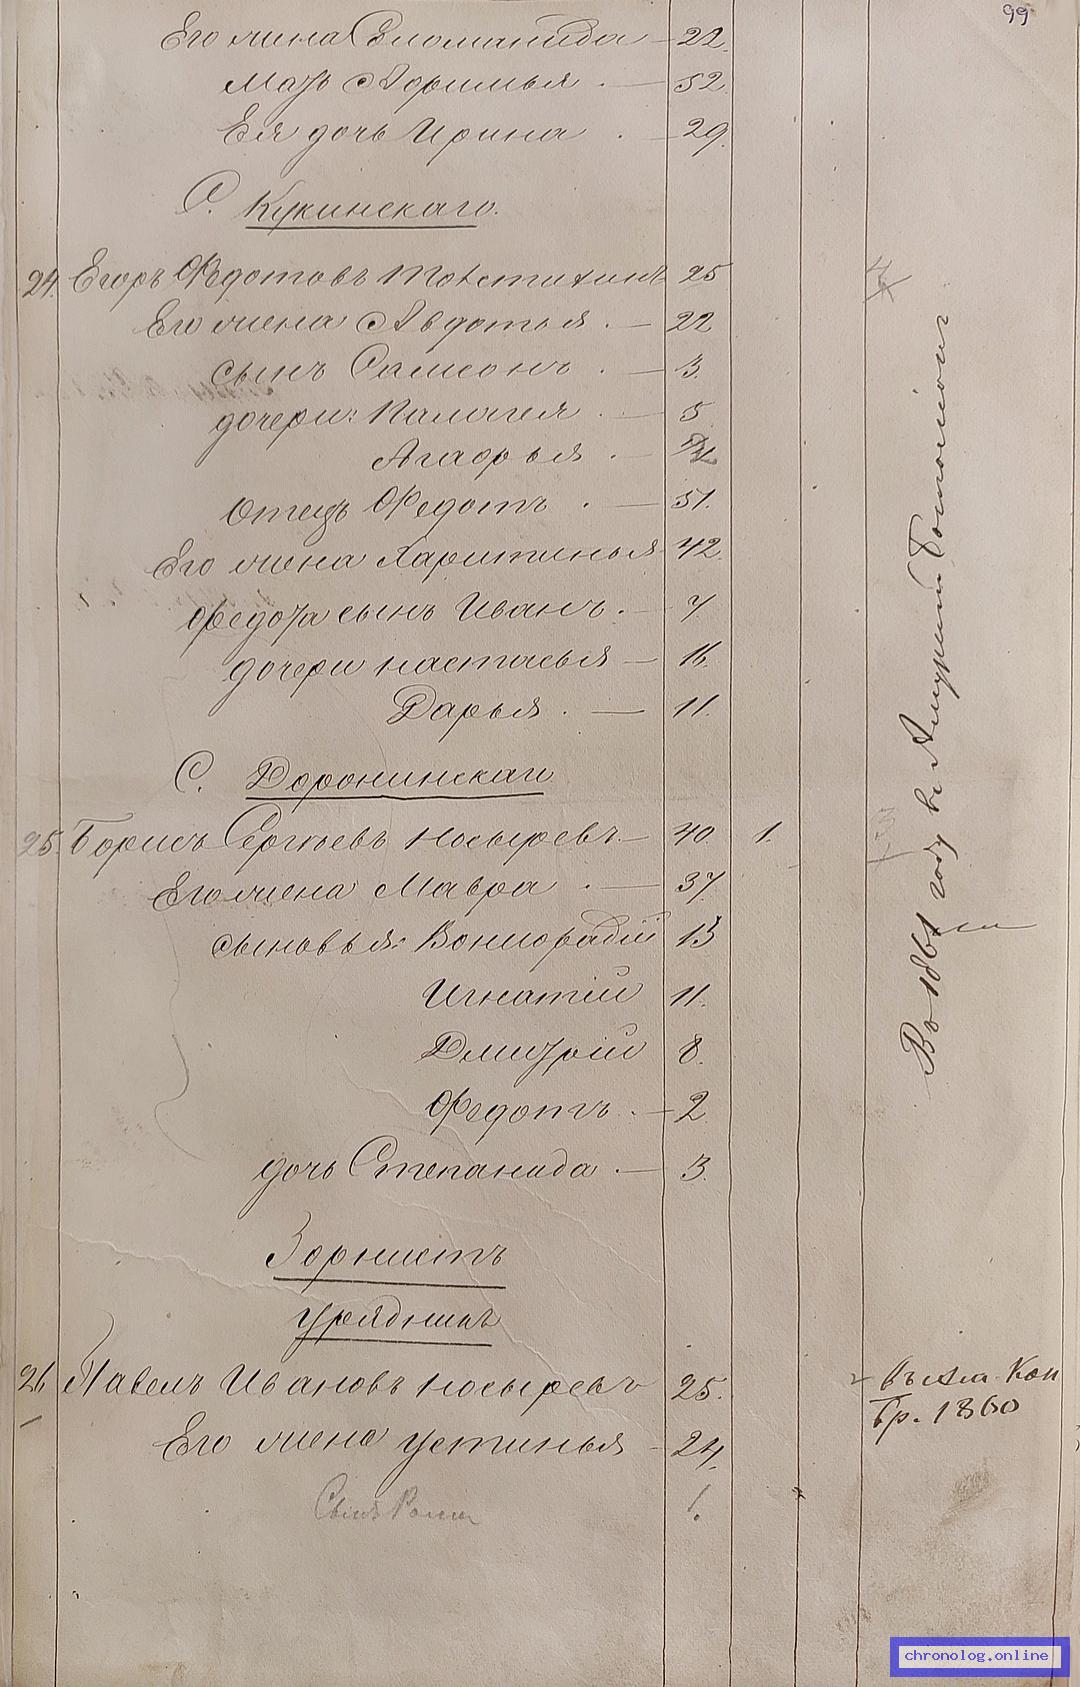 99
Его жена Соломанида — 22.
Мать Афимья . — 52.
Ея дочь Ирина . — 29.
С. Кукинскаго.
24. Егоръ Федотовъ 25
Его жена Авдотья . — 22
сынъ Самсонъ . — 3.
дочери: Палагея . — 5
Агафья . —
Отецъ Федотъ . — 51.
Его жена Харитинья 42.
Федота сынъ Иванъ . — 7.
дочери Настасья — 16.
Дарья . — 11.
С. Доронинскаго
25. Борисъ Сергѣевъ Носыревъ — 40. 1.
Его жена Мавра . — 37.
сыновья: 13
Игнатій 11.
Дмитрій 8.
Федотъ . — 2
дочь Степанида . — 3.
Въ 1861 году въ Амурскій баталіонъ
Горнистъ
Урядникъ
26 Павелъ Ивановъ Носыревъ 25.
Его жена Устинья — 24.
въ Кон
Бр. 1860
Сынъ 1.
chronolog.online